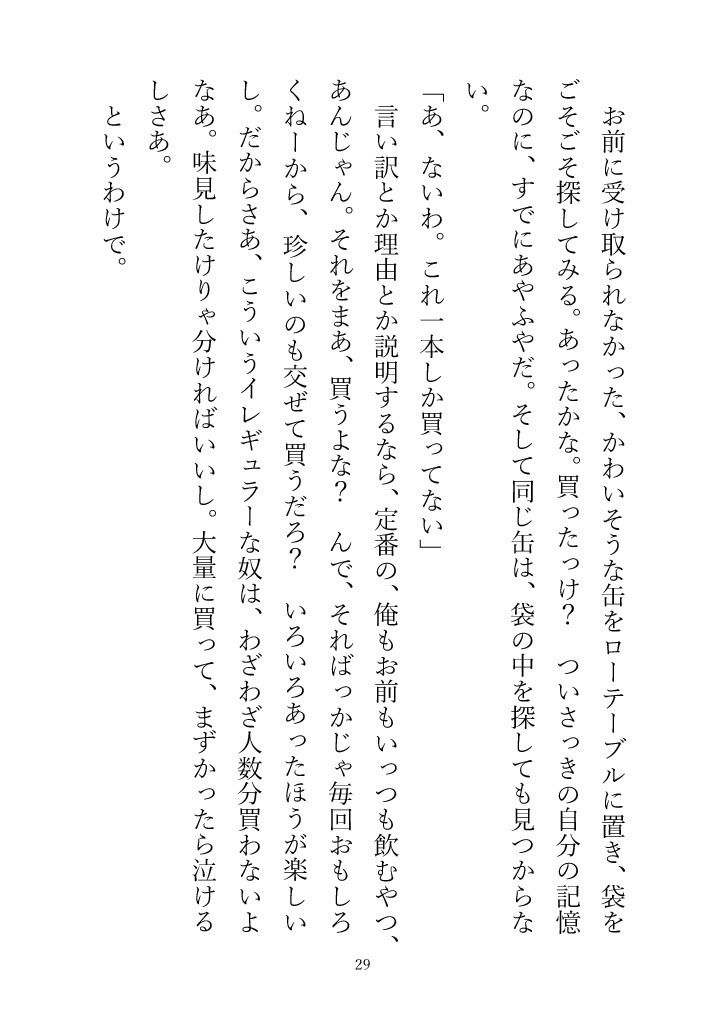 お前に受け取られなかった、かわいそうな缶をローテーブルに置き、袋を
ごそごそ探してみる。あったかな。買ったっけ？　ついさっきの自分の記憶
なのに、すでにあやふやだ。そして同じ缶は、袋の中を探しても見つからな
い。
「あ、ないわ。これ一本しか買ってない」
　言い訳とか理由とか説明するなら、定番の、俺もお前もいっつも飲むやつ、
あんじゃん。それをまあ、買うよな？　んで、そればっかじゃ毎回おもしろ
くねーから、珍しいのも交ぜて買うだろ？　いろいろあったほうが楽しい
し。だからさあ、こういうイレギュラーな奴は、わざわざ人数分買わないよ
なあ。味見したけりゃ分ければいいし。大量に買って、まずかったら泣ける
しさあ。
　というわけで。
29